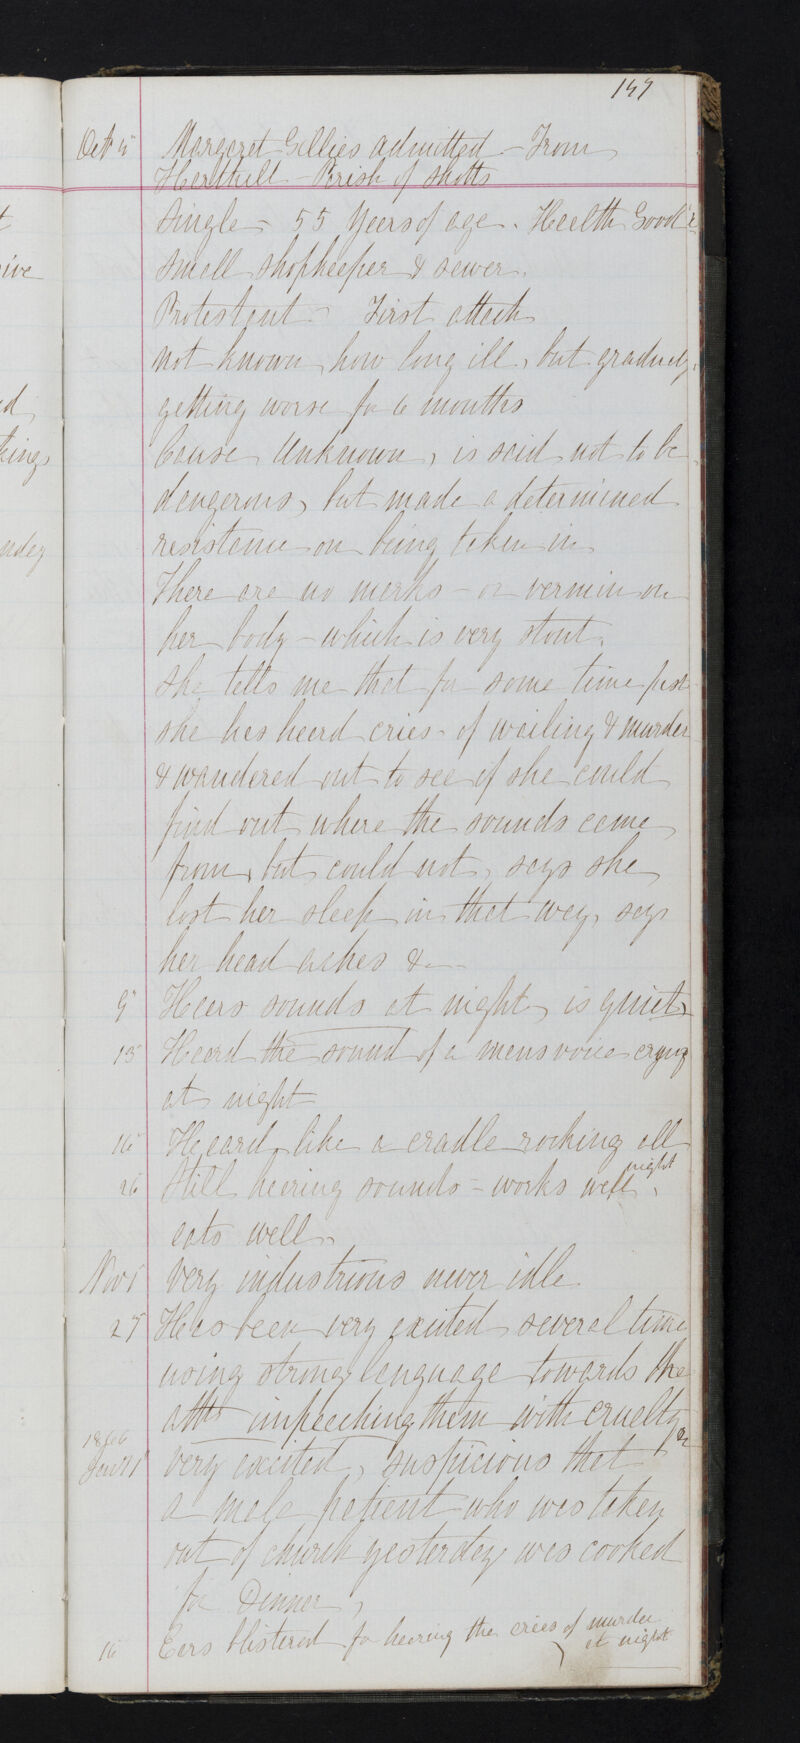 147
Oct 5 Margaret Gillies admitted - From
Harthill - Parish of Shotts
Single - 55 Years of age. Health Good &
small shopkeeper & sewer.
Protestant - First attack
not known how long ill, but gradualy
getting worse for 6 months
Cause Unknown, is said not to be
dangerous, but made a determined
resistance on being taken in
There are no marks - or vermin on
her body - which is very stout.
she tells me that for some time past
she has heard cries - of wailing & murder
& wandered out to see if she could
find out where the sounds came
from, but could not, says she
lost her sleep in that way, says
her head aches &c
9 Hears sounds at night, is quiet,
13 Heard the sound of a mans voice crying
at night
16 Heard like a cradle rocking all
night
26 Still hearing sounds - works well,
eats well.
Nov 1 Very industrious never idle
27 Has been very excited several time
using strong language towards the
atts impeaching them with cruelty &c
1866
Jan 1 very excited, suspicious that
a male patient who was taken
out of church yesterday was cooked
for Dinner,
16 Ears blistered for hearing the cries of murder
at night
ive
d
kings
nday